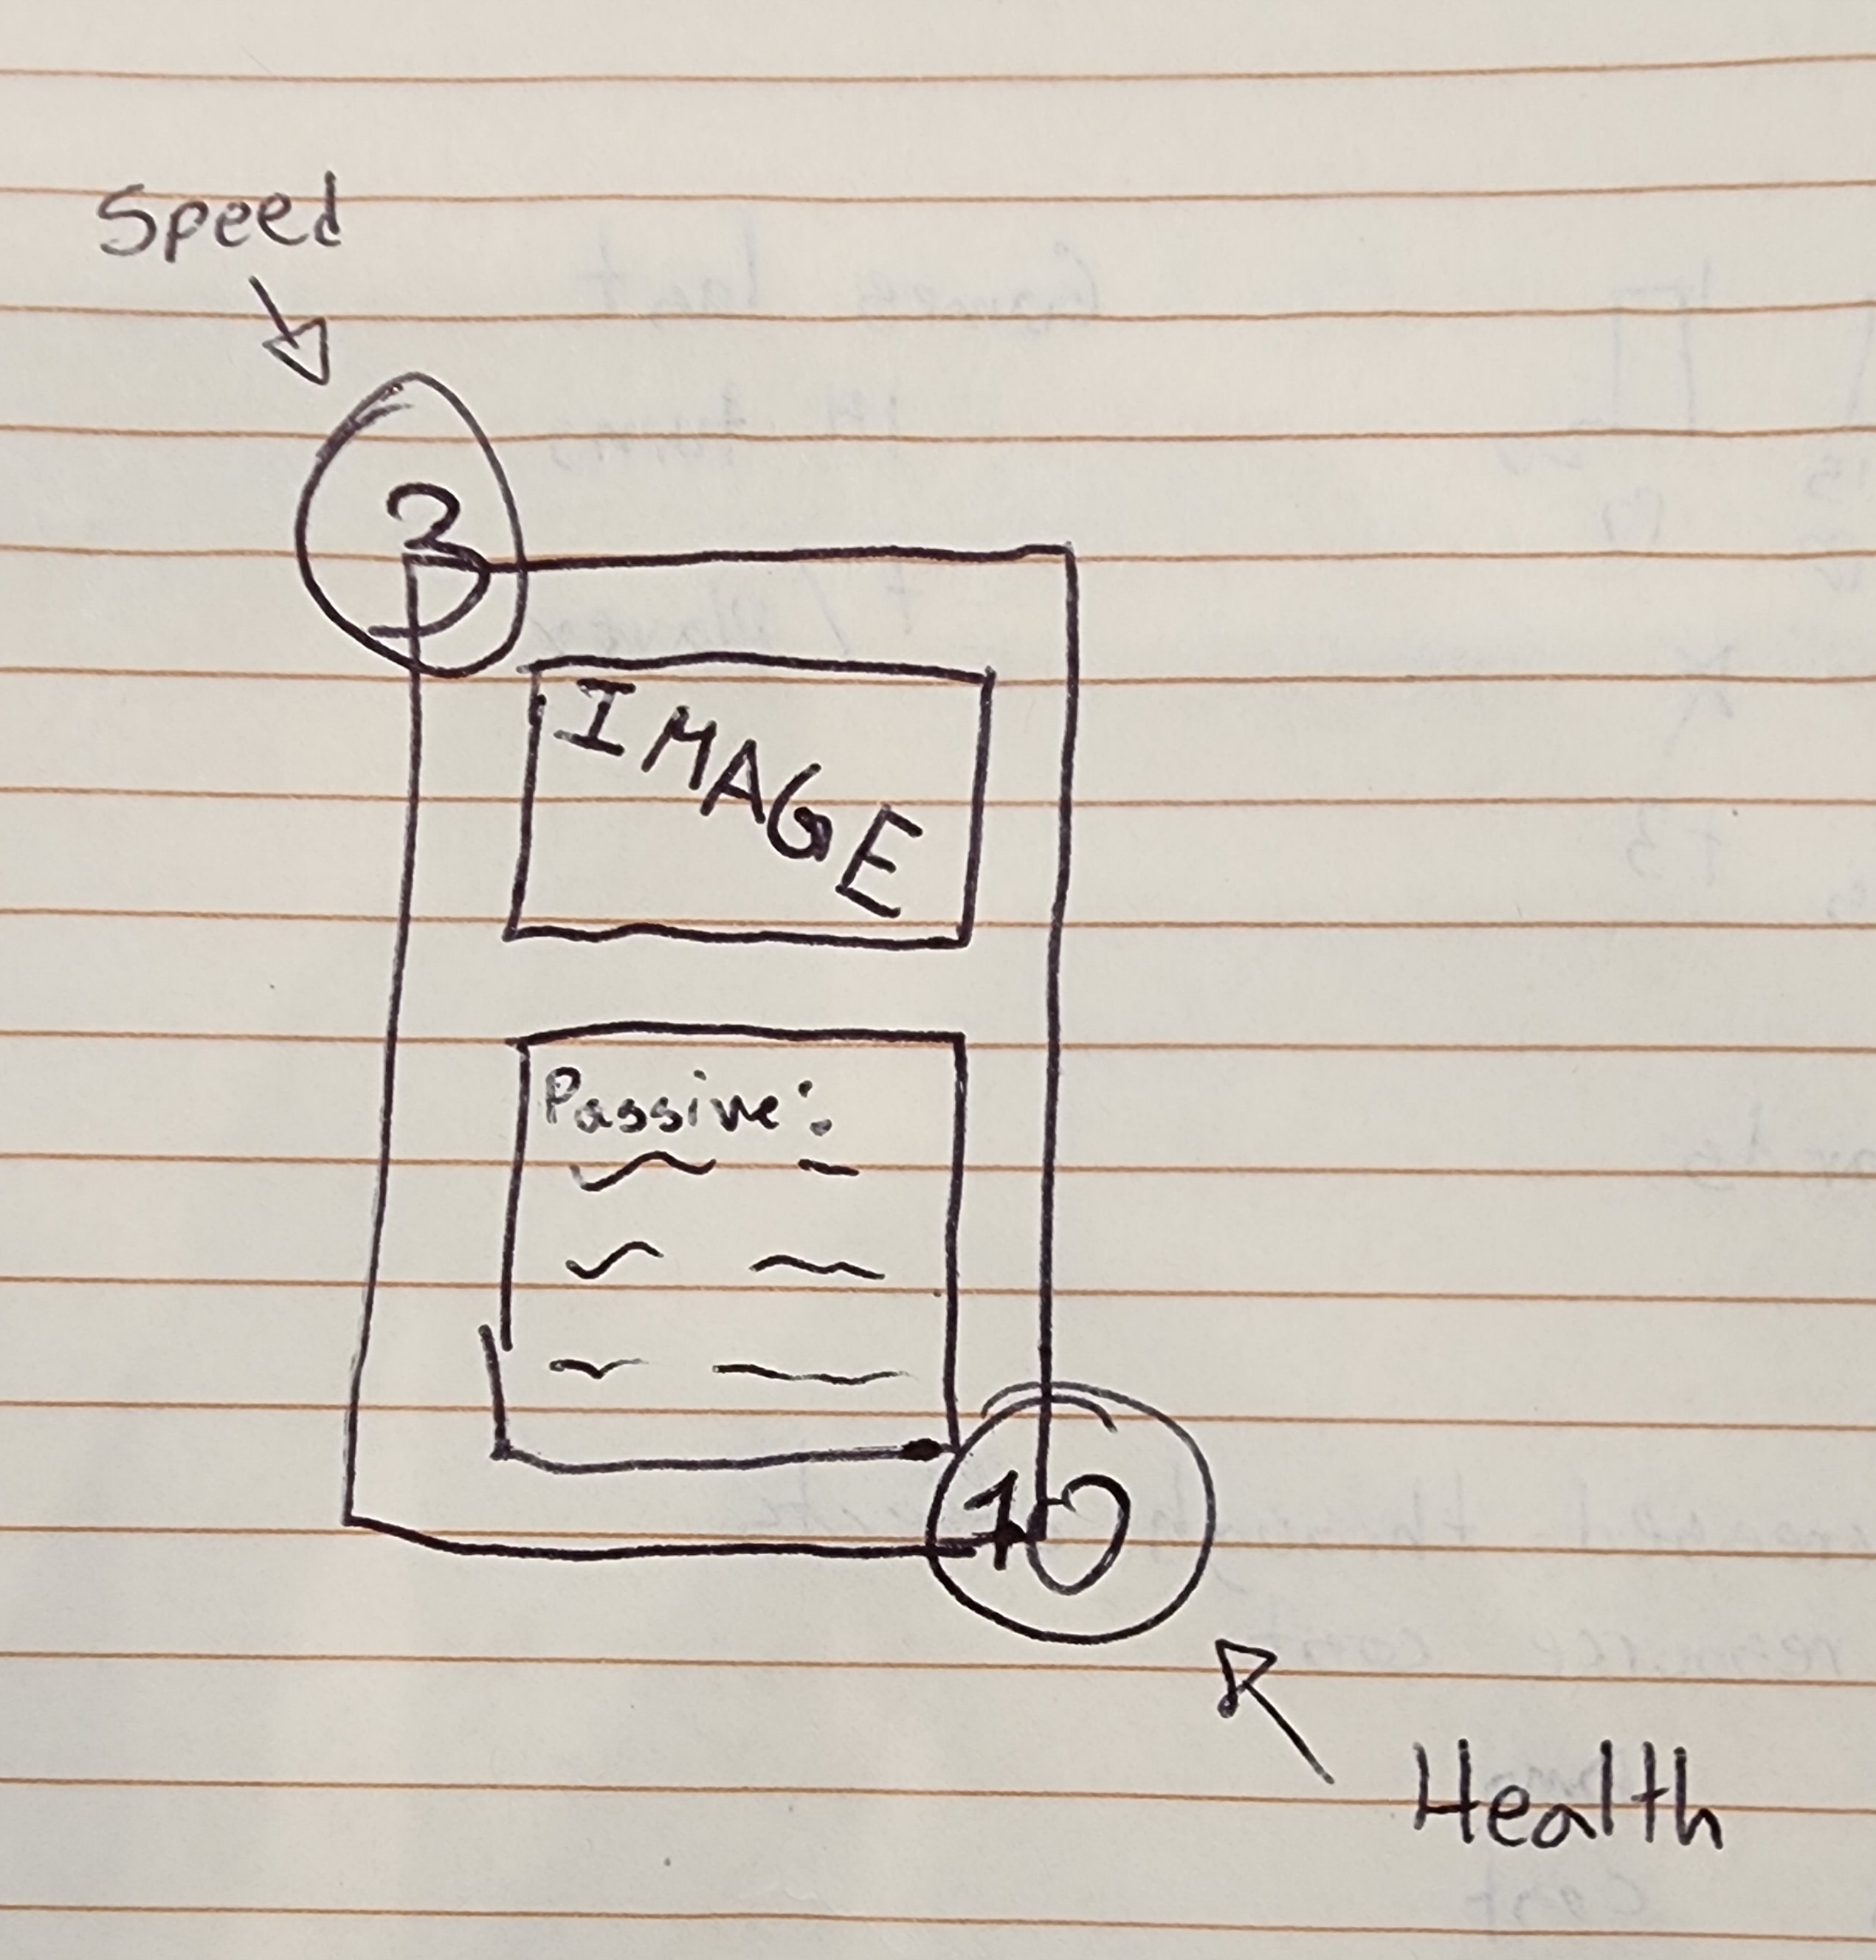 Speed
3
IMAGE
Passive:
10
Health